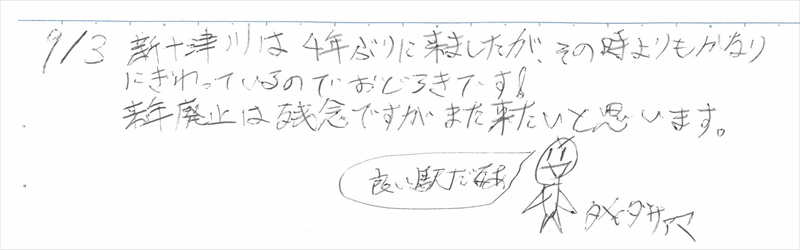 9/3 新十津川は4年ぶりに来ましたが、その時よりもかなり
にぎわっているのでおどろきです!
来年廃止は残念ですがまた来たいと思います。
良い駅だなあ